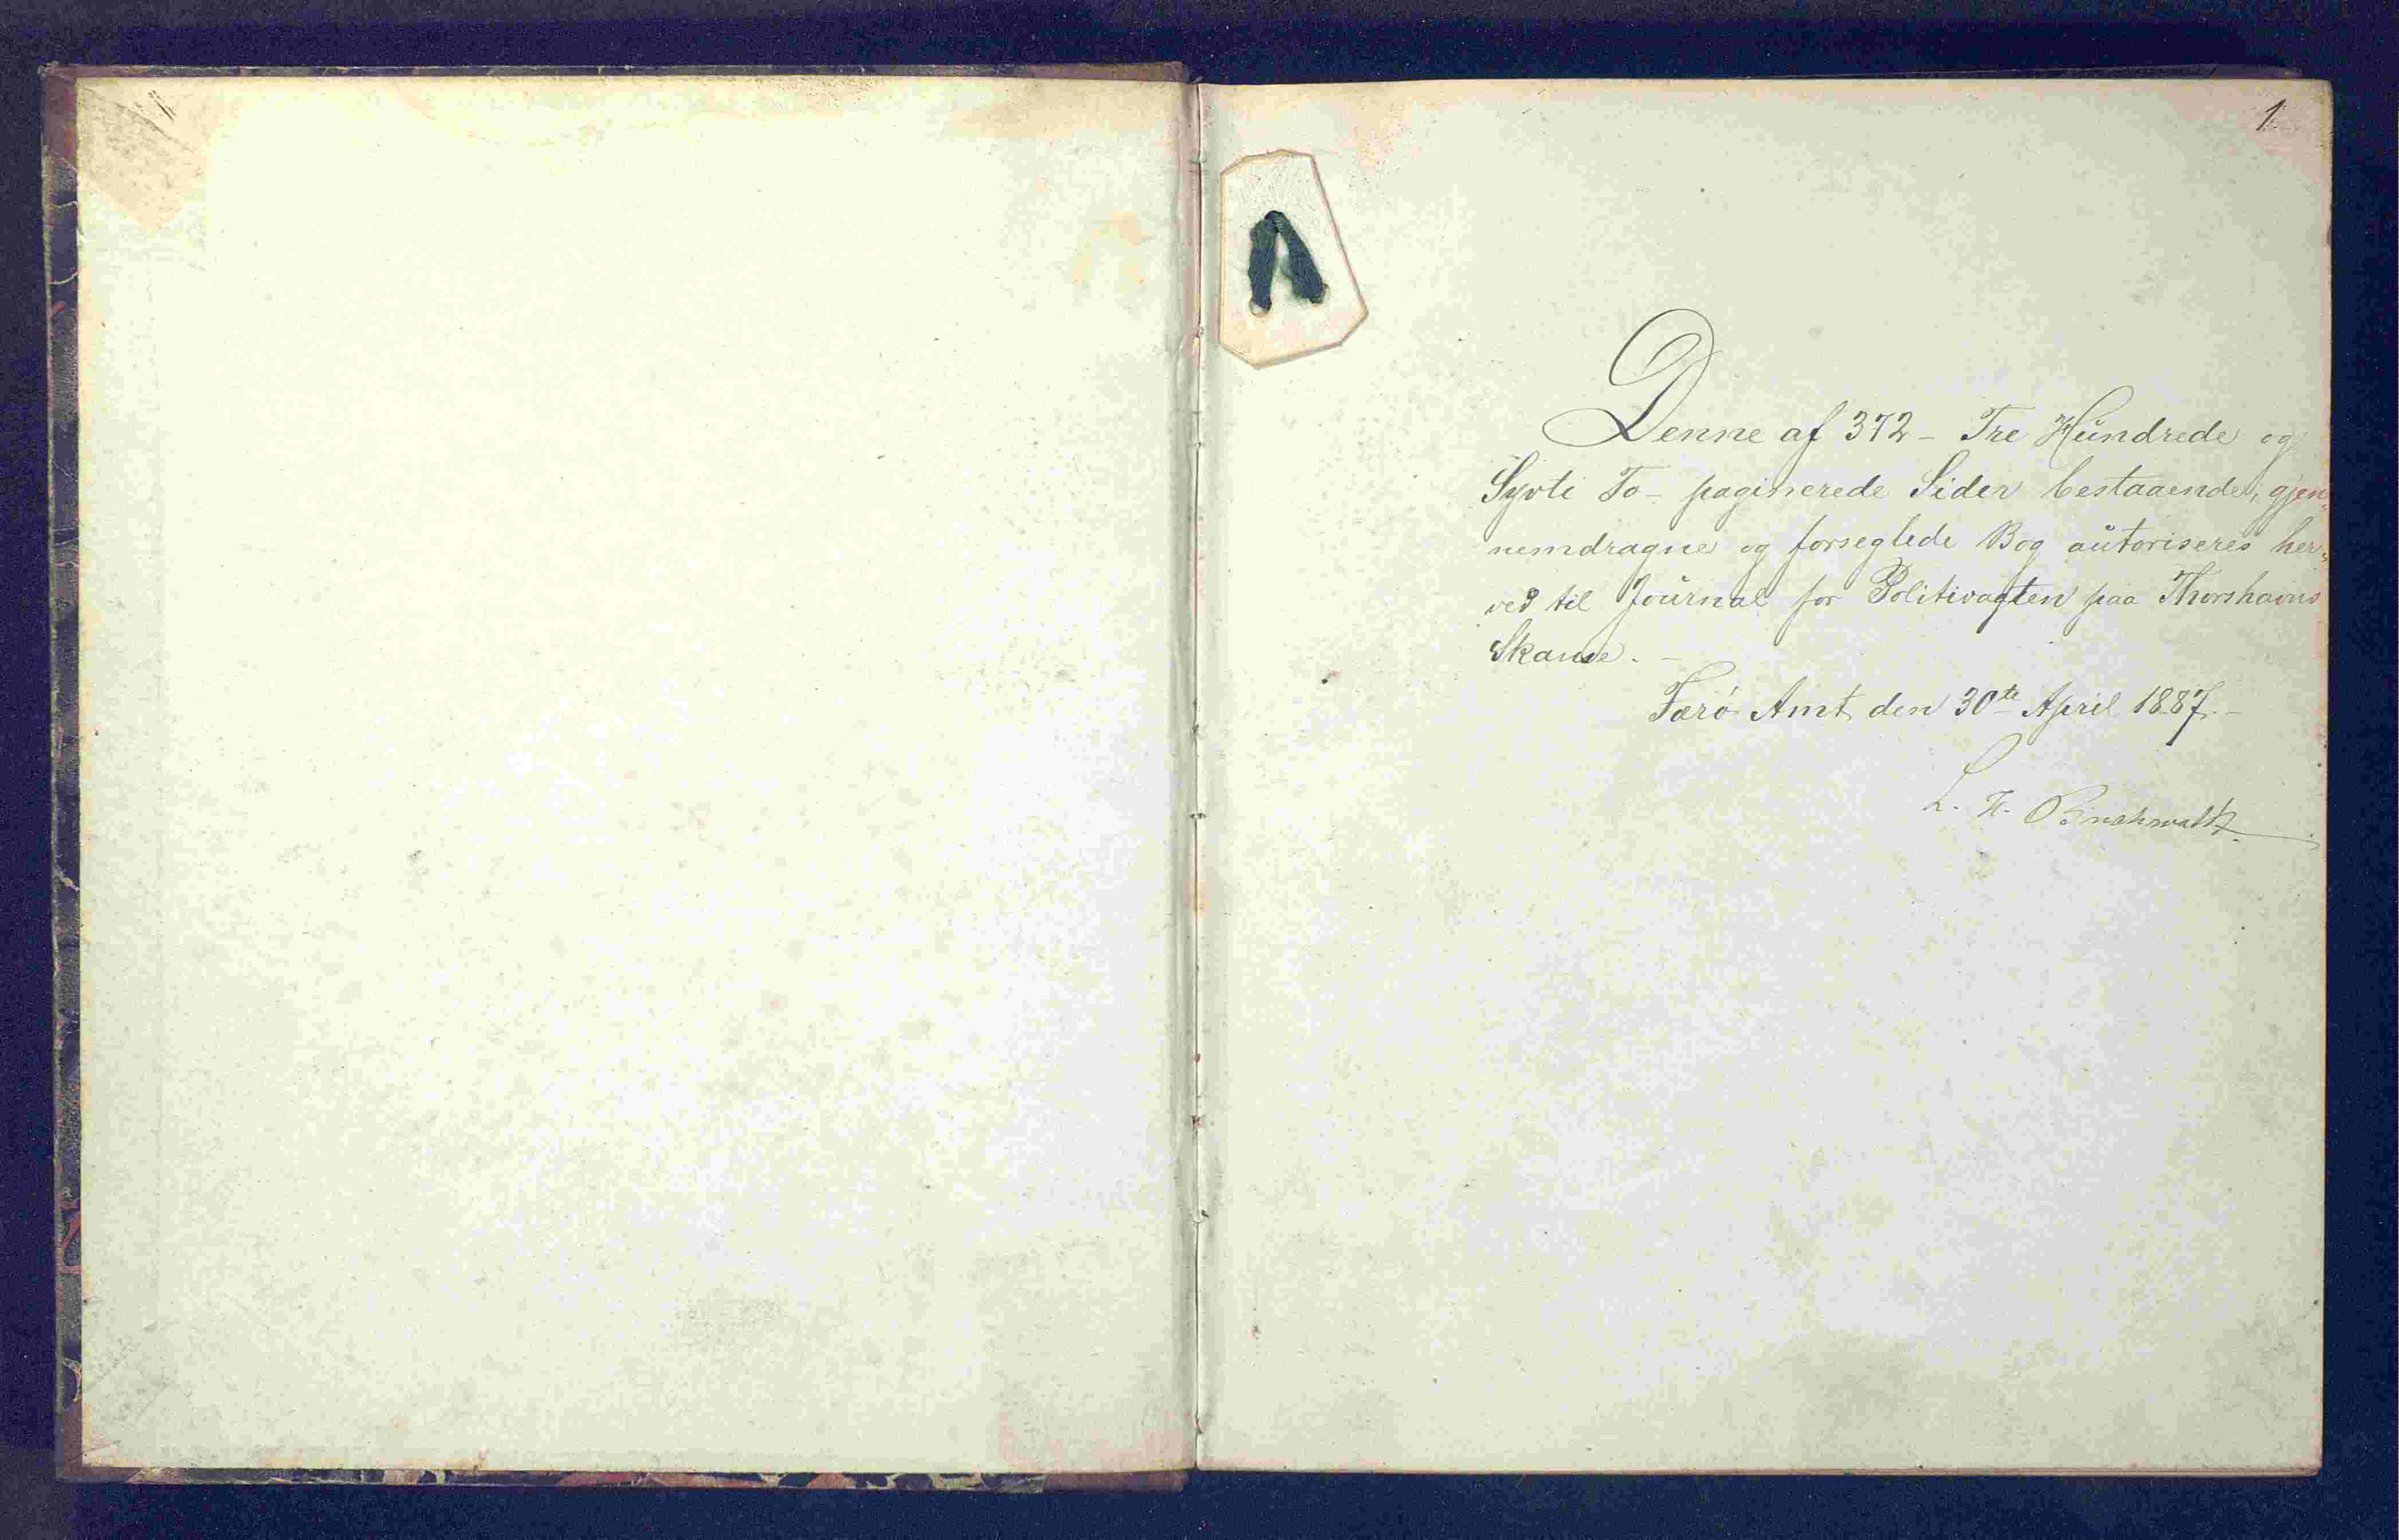 1.
Denne af 372 - Tre Hundrede og
Syvti To - paginerede Sider bestaaende, gjen-
nemdragne og forseglede Bog autoriseres her-
ved til Journal for Politivagten paa Thorshavns
Skandse. -
Færö Amt den 30te April 1887. -
L. F.